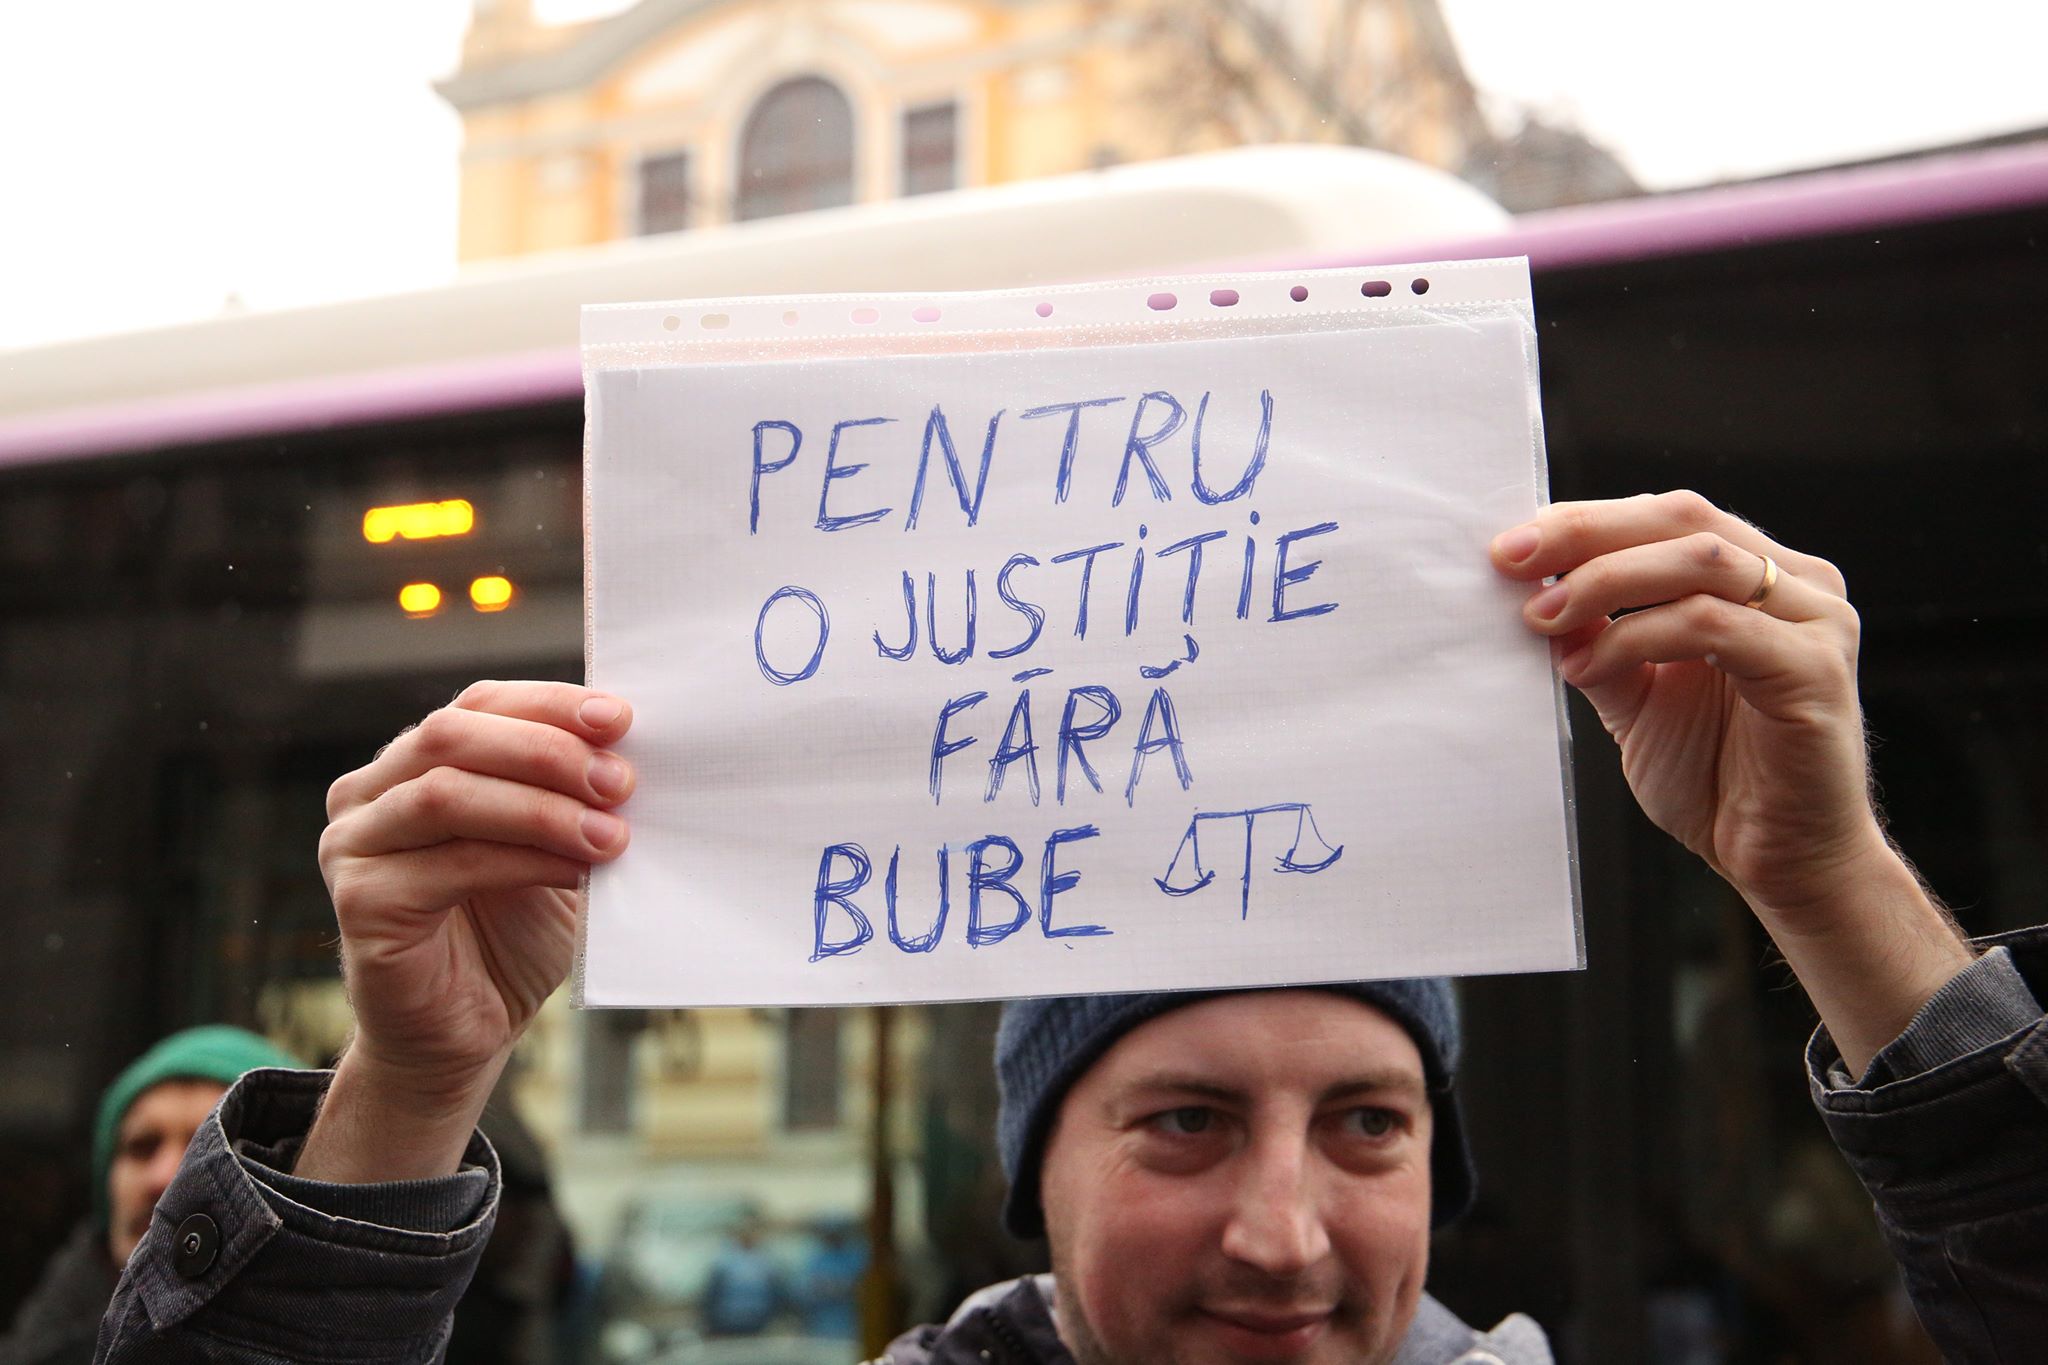 PENTRU
O JUSTIȚIE
FĂRĂ
BUBE